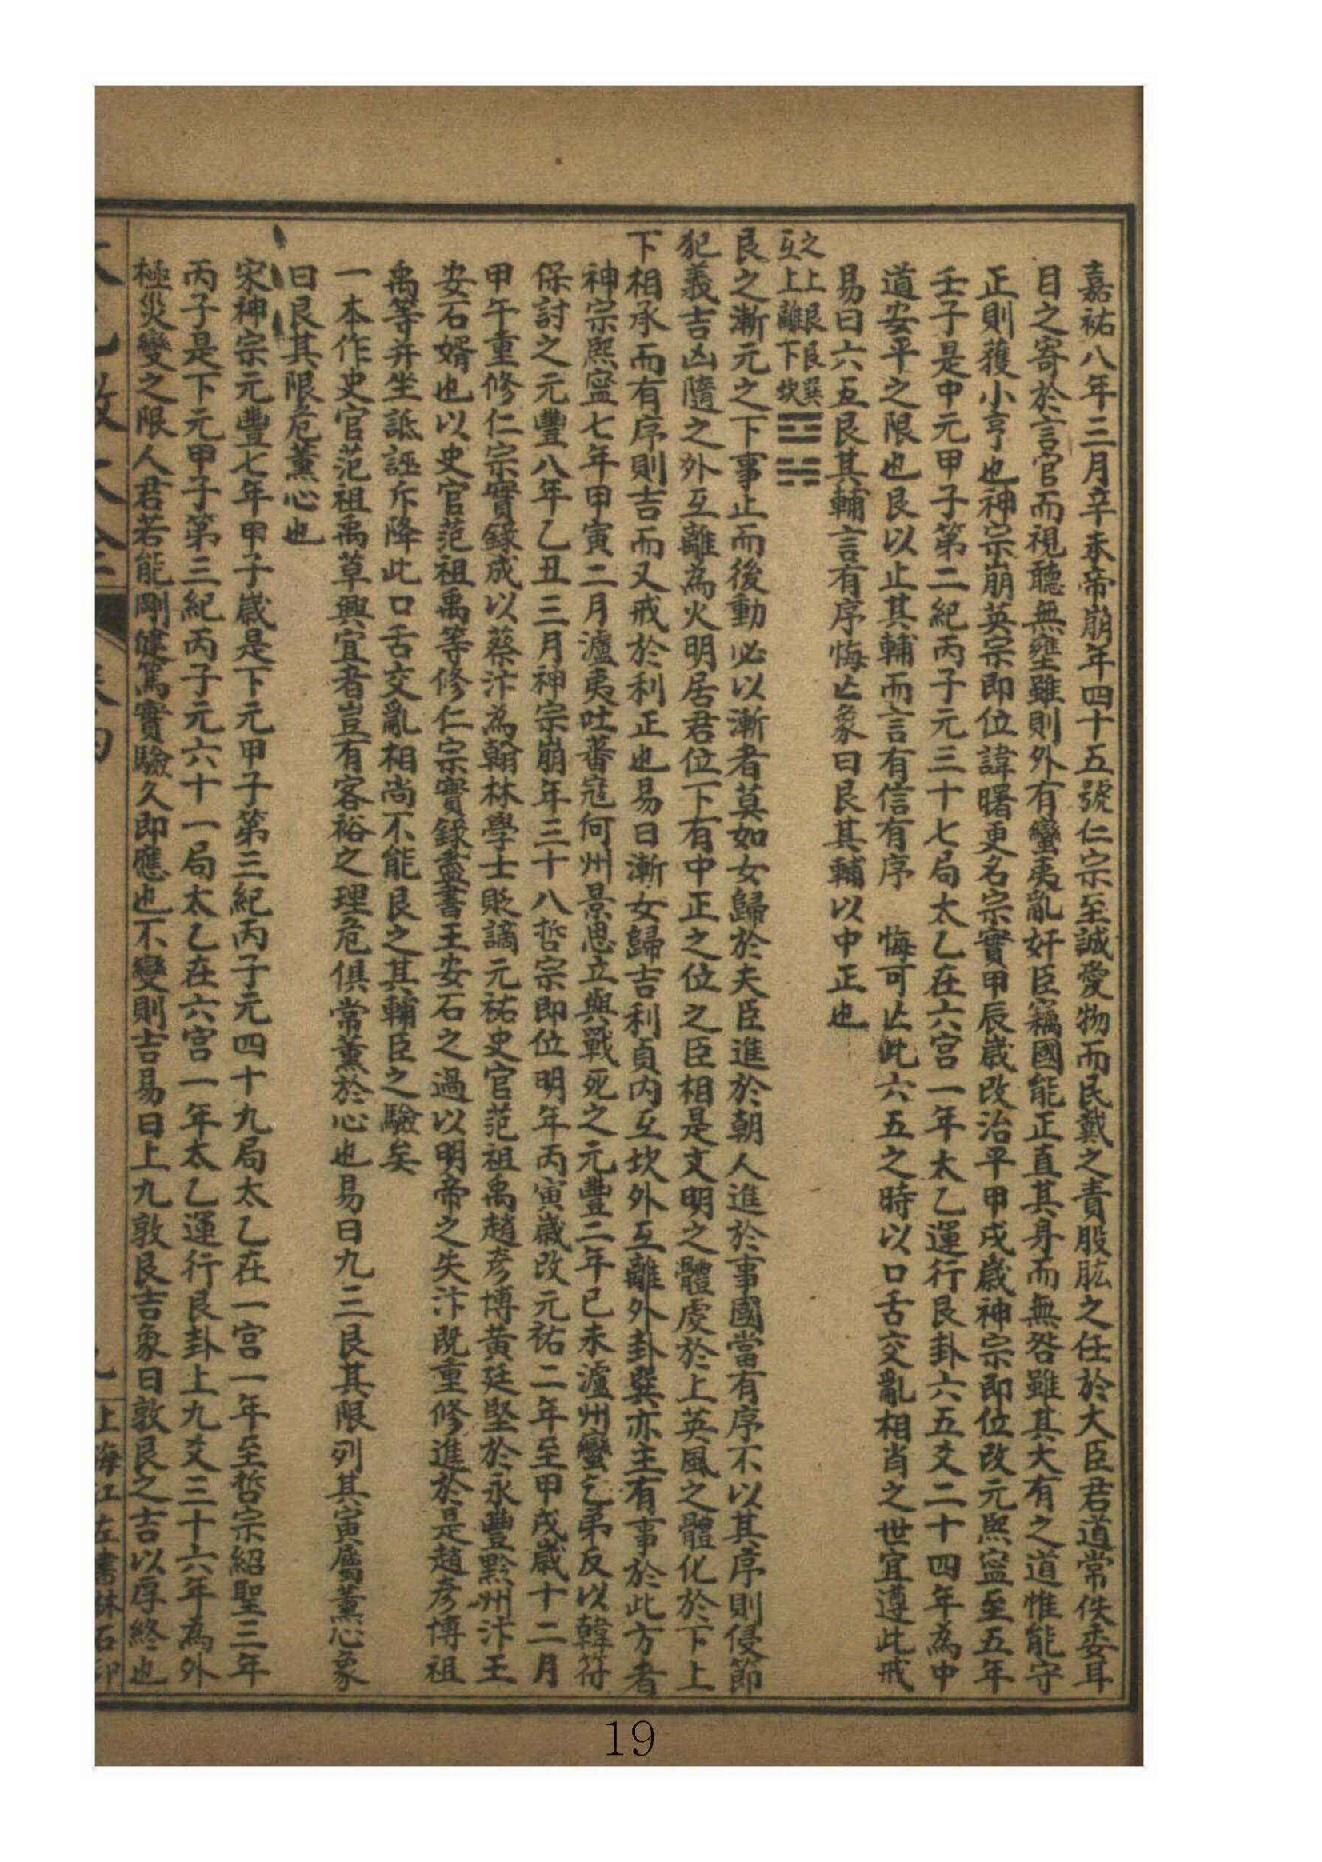 嘉祐八年三月辛未帝崩年四十五號仁宗至誠愛物而民戴之責股肱之任於大臣君道常佚委耳
目之寄於言官而視聽無壅雖則外有蠻夷亂奸臣竊國能正直其身而無咎雖其大有之道惟能守
正則獲小亨也神宗崩英宗即位諱曙更名宗實甲辰歲改治平甲戌歲神宗即位改元熙寧至五年
壬子是中元甲子第二紀丙子元三十七局太乙在六宮一年太乙運行艮卦六五爻二十四年為中
道安平之限也艮以止其輔而言有信有序 悔可亡此六五之時以口舌交亂相肖之世宜遵此戒
易曰六五艮其輔言有序悔亡象曰艮其輔以中正也
之上艮艮巽
互上離下坎
艮之漸元之下事止而後動必以漸者莫如女歸於夫臣進於朝人進於事國當有序不以其序則侵節
犯義吉凶隨之外互離為火明居君位下有中正之位之臣相是文明之體處於上英風之體化於下上
下相承而有序則吉而又戒於利正也易曰漸女歸吉利貞內互坎外互離外卦巽亦主有事於此方者
神宗熙寧七年甲寅二月瀘夷吐蕃寇何州景思立與戰死之元豐二年己未瀘州蠻乞弟反以韓符
保討之元豐八年乙丑三月神宗崩年三十八哲宗即位明年丙寅歲改元祐二年至甲戌歲十二月
甲午重修仁宗實錄成以蔡汴為翰林學士貶謫元祐史官范祖禹趙彥博黃廷堅於永豐黔州汴王
安石婿也以史官范祖禹等修仁宗實錄盡書王安石之過以明帝之失汴既重修進於是趙彥博祖
禹等并坐詆誣斥降此口舌交亂相尚不能艮之其輔臣之驗矣
一本作史官范祖禹草興宜者豈有客裕之理危俱常薰於心也易曰九三艮其限列其寅厲薰心象
曰艮其限危薰心也
宋神宗元豐七年甲子歲是下元甲子第三紀丙子元四十九局太乙在一宮一年至哲宗紹聖三年
丙子是下元甲子第三紀丙子元六十一局太乙在六宮一年太乙運行艮卦上九爻三十六年為外
極災變之限人君若能剛健篤實驗久即應也不變則吉易曰上九敦艮吉象曰敦艮之吉以厚終也
上海江左書林石印
19